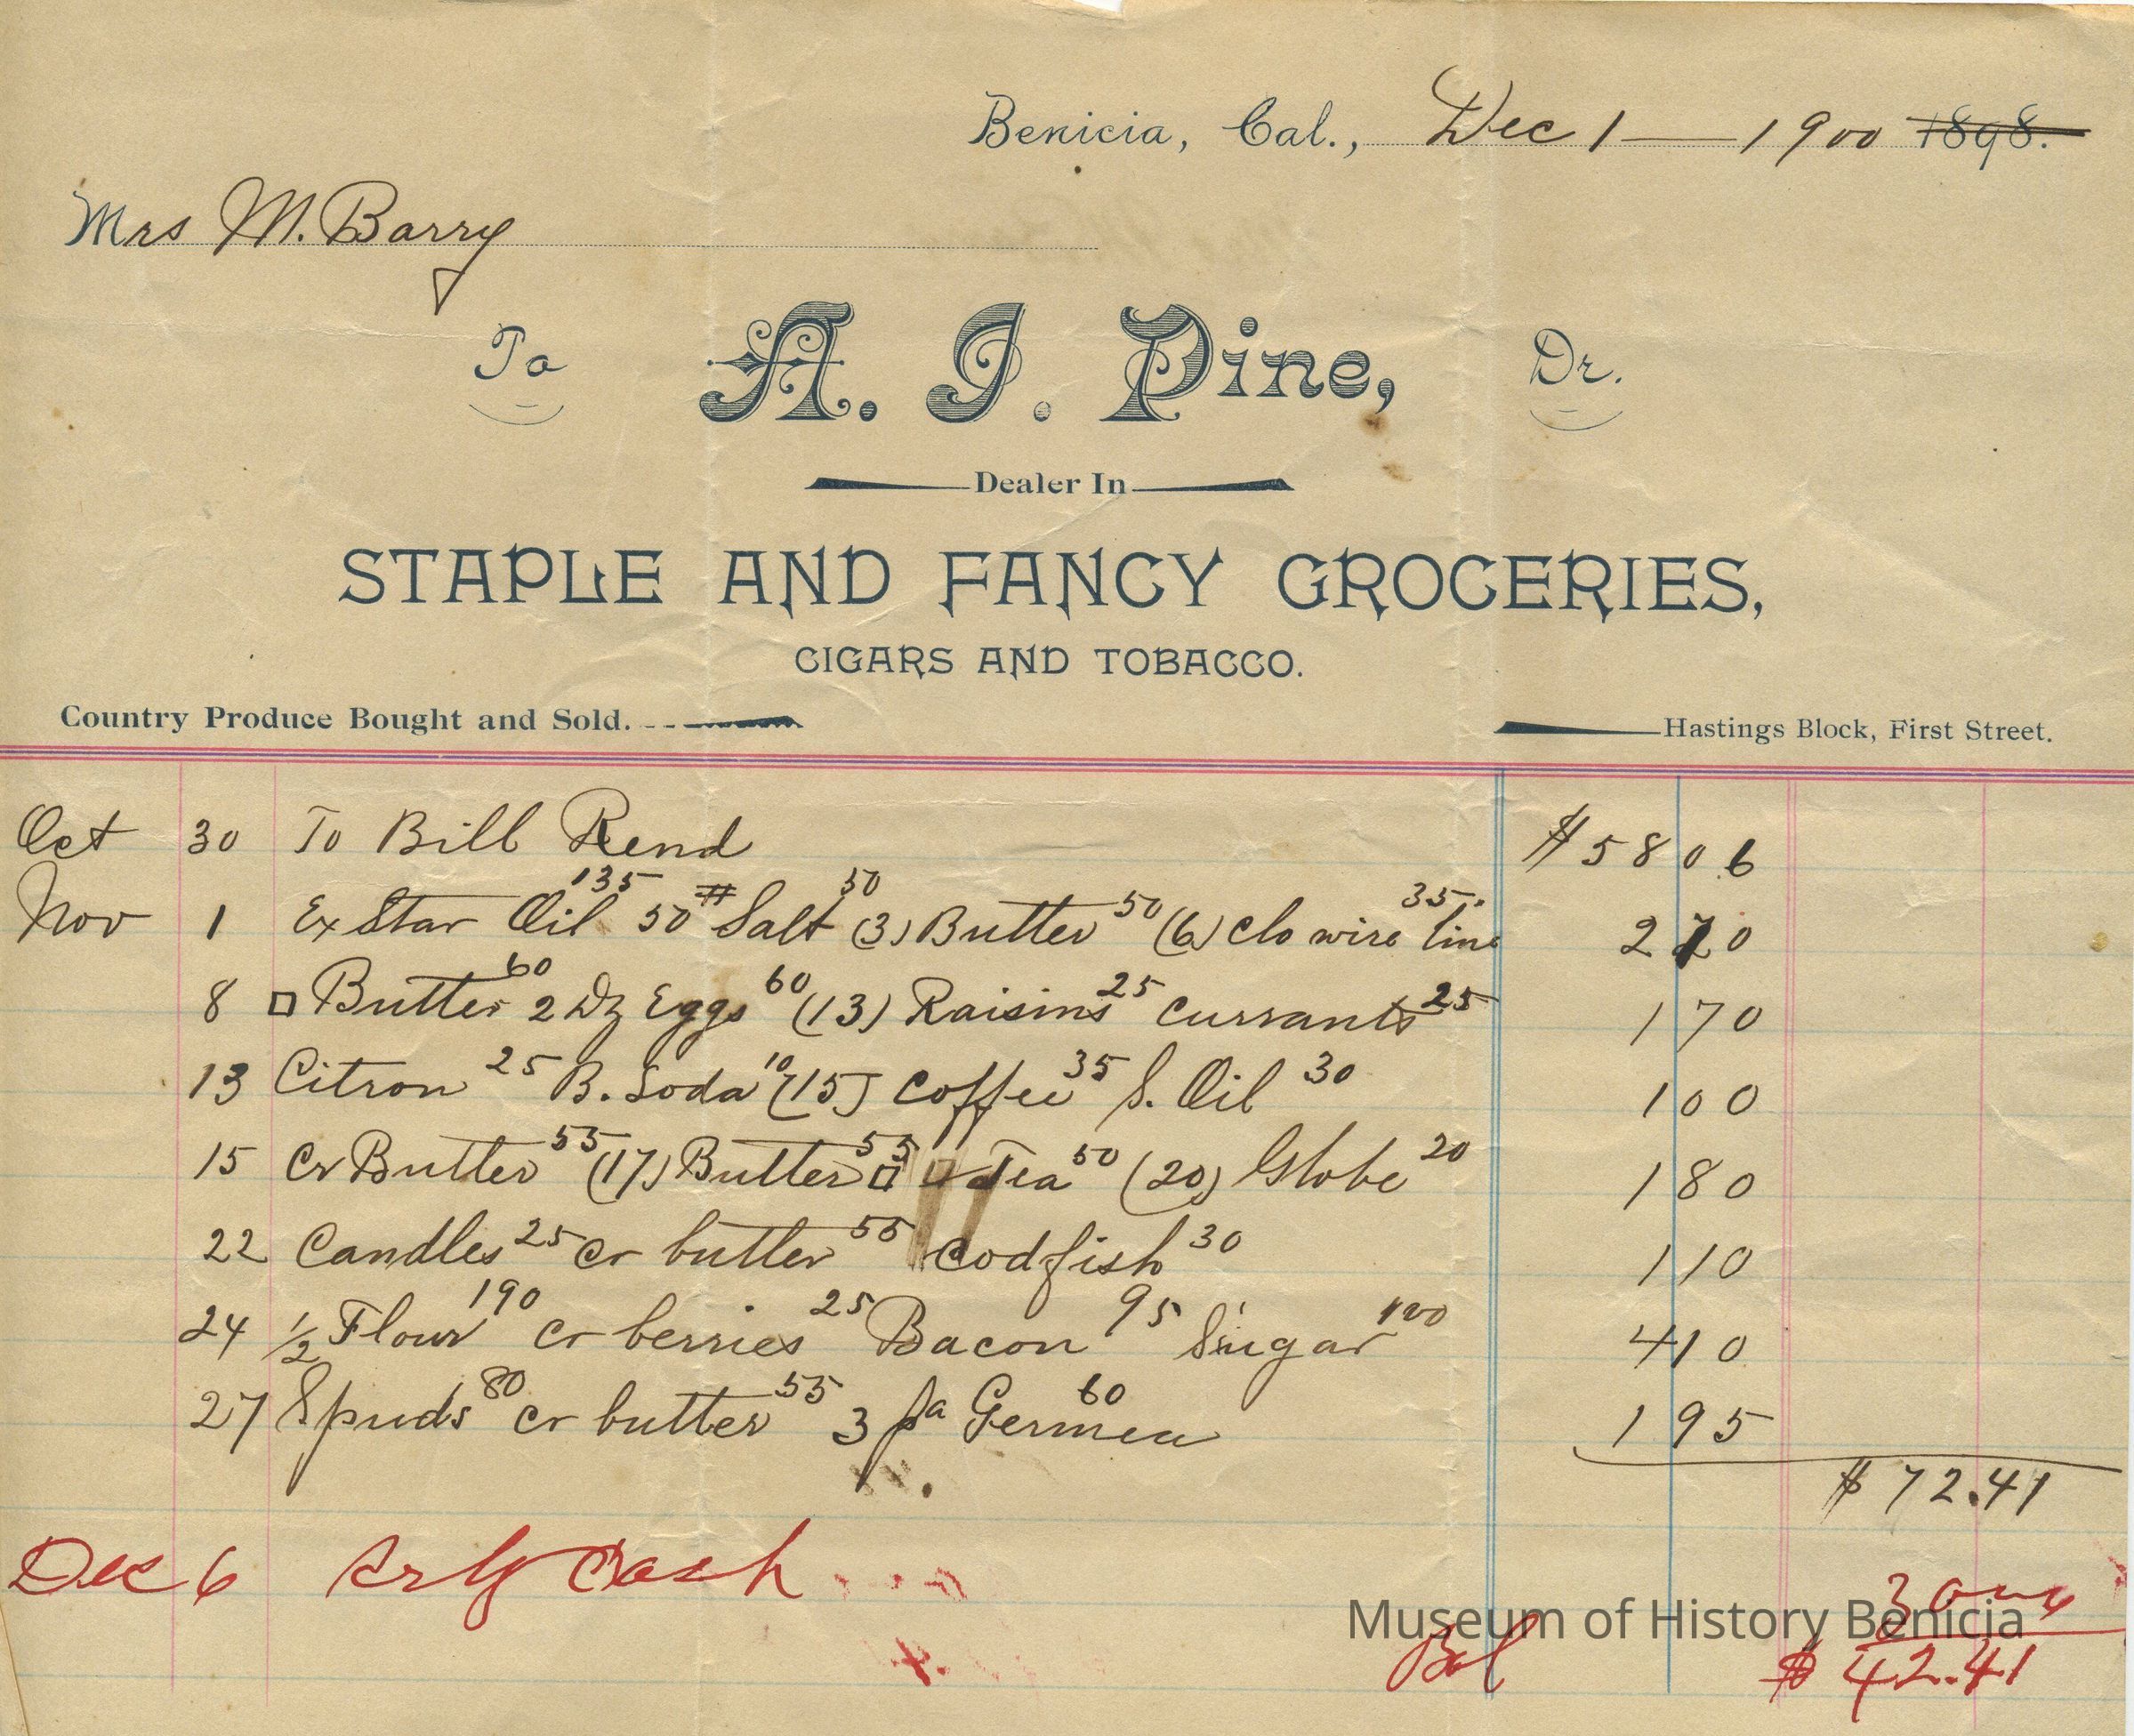 Benicia, Cal., Dec 1 — 1900 1898.
Mrs M. Barry
To A. J. Pine, Dr.
Dealer In
STAPLE AND FANCY GROCERIES,
CIGARS AND TOBACCO.
Country Produce Bought and Sold. Hastings Block, First Street.
Oct 30 To Bill Rend $58 06
Nov 1 Ex Star Oil 135 50 # Salt 50 (3) Butter 50 (6) clo wire line 35. 2 70
8 □ Butter 60 2 Dz Eggs 60 (13) Raisins 25 Currants 25 1 70
13 Citron 25 B. Soda 10 (15) Coffee 35 S. Oil 30 1 00
15 Cr Butter 55 (17) Butter 55 □ □ Tea 50 (20) Globe 20 1 80
22 Candles 25 cr butter 55 codfish 30 1 10
24 1/2 Flour 190 cr berries 25 Bacon 95 Sugar 100 4 10
27 Spuds 80 cr butter 55 3 pa Germea 60 1 95
$72.41
Dec 6 Cr By Cash 30
Museum of History Benicia
Bal $42.41